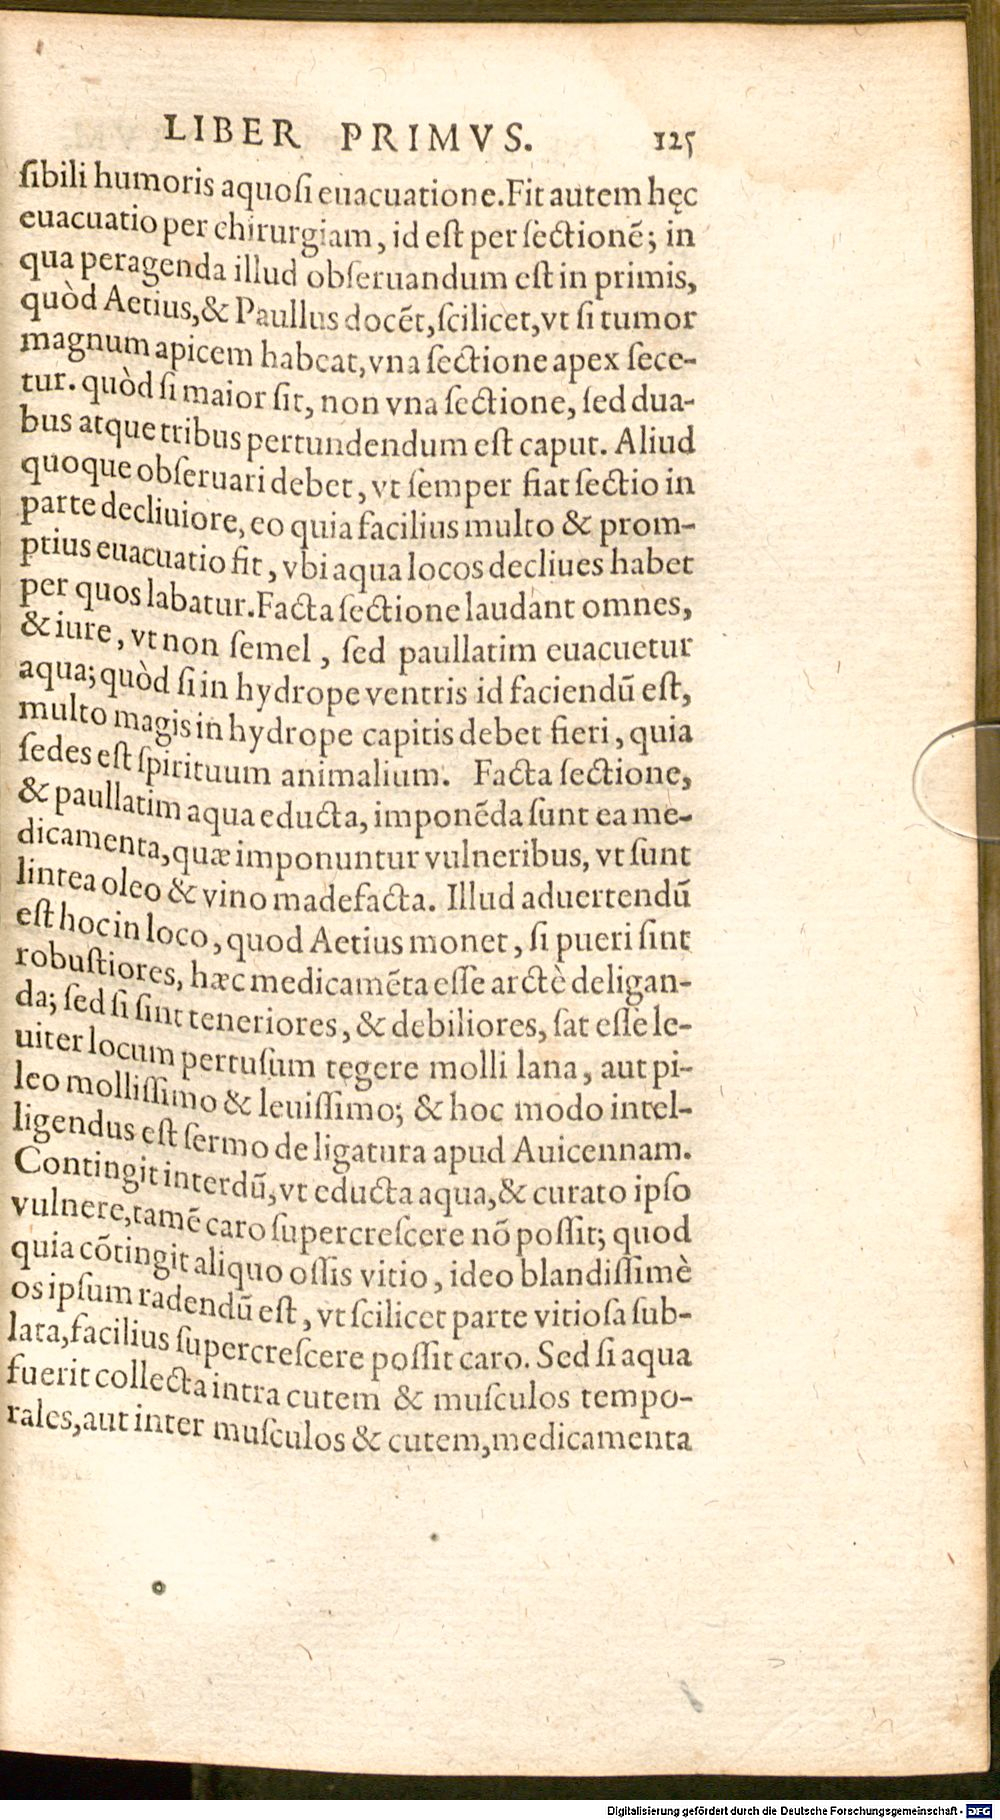 LIBER PRIMVS. 125
sibili humoris aquosi euacuatione. Fit autem hęc
euacuatio per chirurgiam, id est per sectionē; in
qua peragenda illud obseruandum est in primis,
quòd Aetius, & Paullus docēt, scilicet, vt si tumor
magnum apicem habeat, vna sectione apex sece-
tur. quòd si maior sit, non vna sectione, sed dua-
bus atque tribus pertundendum est caput. Aliud
quoque obseruari debet, vt semper fiat sectio in
parte decliuiore, eo quia facilius multo & prom-
ptius euacuatio fit, vbi aqua locos decliues habet
per quos labatur. Facta sectione laudant omnes,
& iure, vt non semel, sed paullatim euacuetur
aqua; quòd si in hydrope ventris id faciendū est,
multo magis in hydrope capitis debet fieri, quia
sedes est spirituum animalium. Facta sectione,
& paullatim aqua educta, imponēda sunt ea me-
dicamenta, quæ imponuntur vulneribus, vt sunt
lintea oleo & vino madefacta. Illud aduertendū
est hoc in loco, quod Aetius monet, si pueri sint
robustiores, hæc medicamēta esse arctè deligan-
da; sed si sint teneriores, & debiliores, sat esse le-
uiter locum pertusum tegere molli lana, aut pi-
leo mollissimo & leuissimo; & hoc modo intel-
ligendus est sermo de ligatura apud Auicennam.
Contingit interdū, vt educta aqua, & curato ipso
vulnere, tamē caro supercrescere nō possit; quod
quia cōtingit aliquo ossis vitio, ideo blandissimè
os ipsum radendū est, vt scilicet parte vitiosa sub-
lata, facilius supercrescere possit caro. Sed si aqua
fuerit collecta intra cutem & musculos tempo-
rales, aut inter musculos & cutem, medicamenta
Digitalisierung gefördert durch die Deutsche Forschungsgemeinschaft - DFG